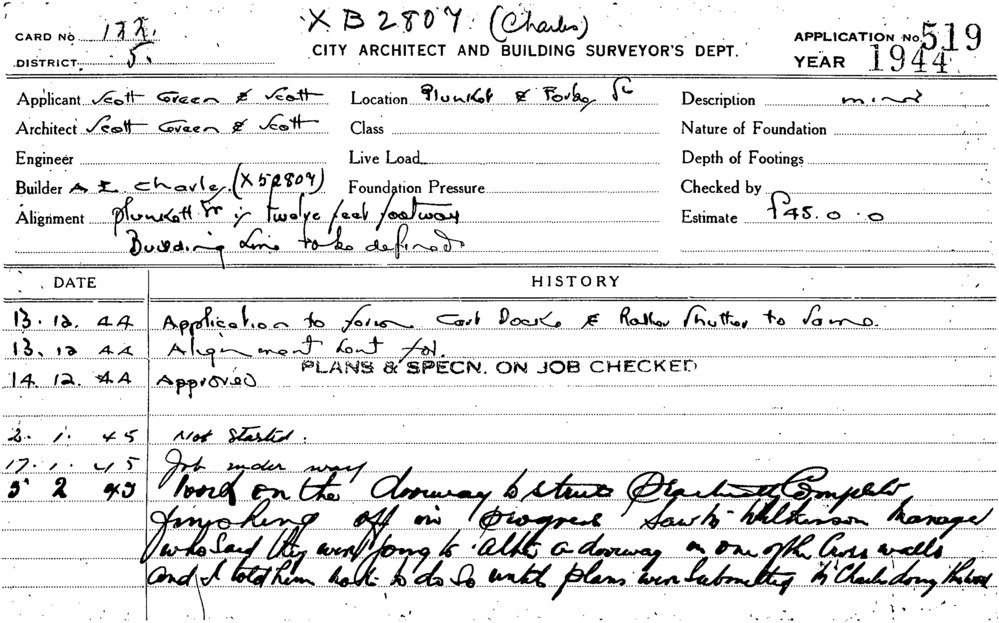 XB2807 (Charles)
CARD No 122.
CITY ARCHITECT AND BUILDING SURVEYOR'S DEPT.
APPLICATION No. 519
DISTRICT 5.
YEAR 1944
Applicant Scott Green & Scott
Location Plunket & Forbes St
Description minor
Architect Scott Green & Scott
Class
Nature of Foundation
Engineer
Live Load
Depth of Footings
Builder A E Charles (XB2807)
Foundation Pressure
Checked by
Alignment Plunkett St is twelve feet footway
Estimate £45.0.0
Building Line to be defined
DATE
HISTORY
13.12.44 Application to form Cart Docks & Roller Shutter to same.
13.12.44 Alignment sent for.
PLANS & SPECN. ON JOB CHECKED
14.12.44 Approved
2.1.45 Not Started.
17.1.45 Job under way
5 2 45 Work on the doorway to street Practically Complete
finishing off in progress Saw Mr Wilkinson Manager
who said they were going to alter a doorway in one of the Cross walls
and I told him not to do so until plans were submitted Mr Charles doing the work